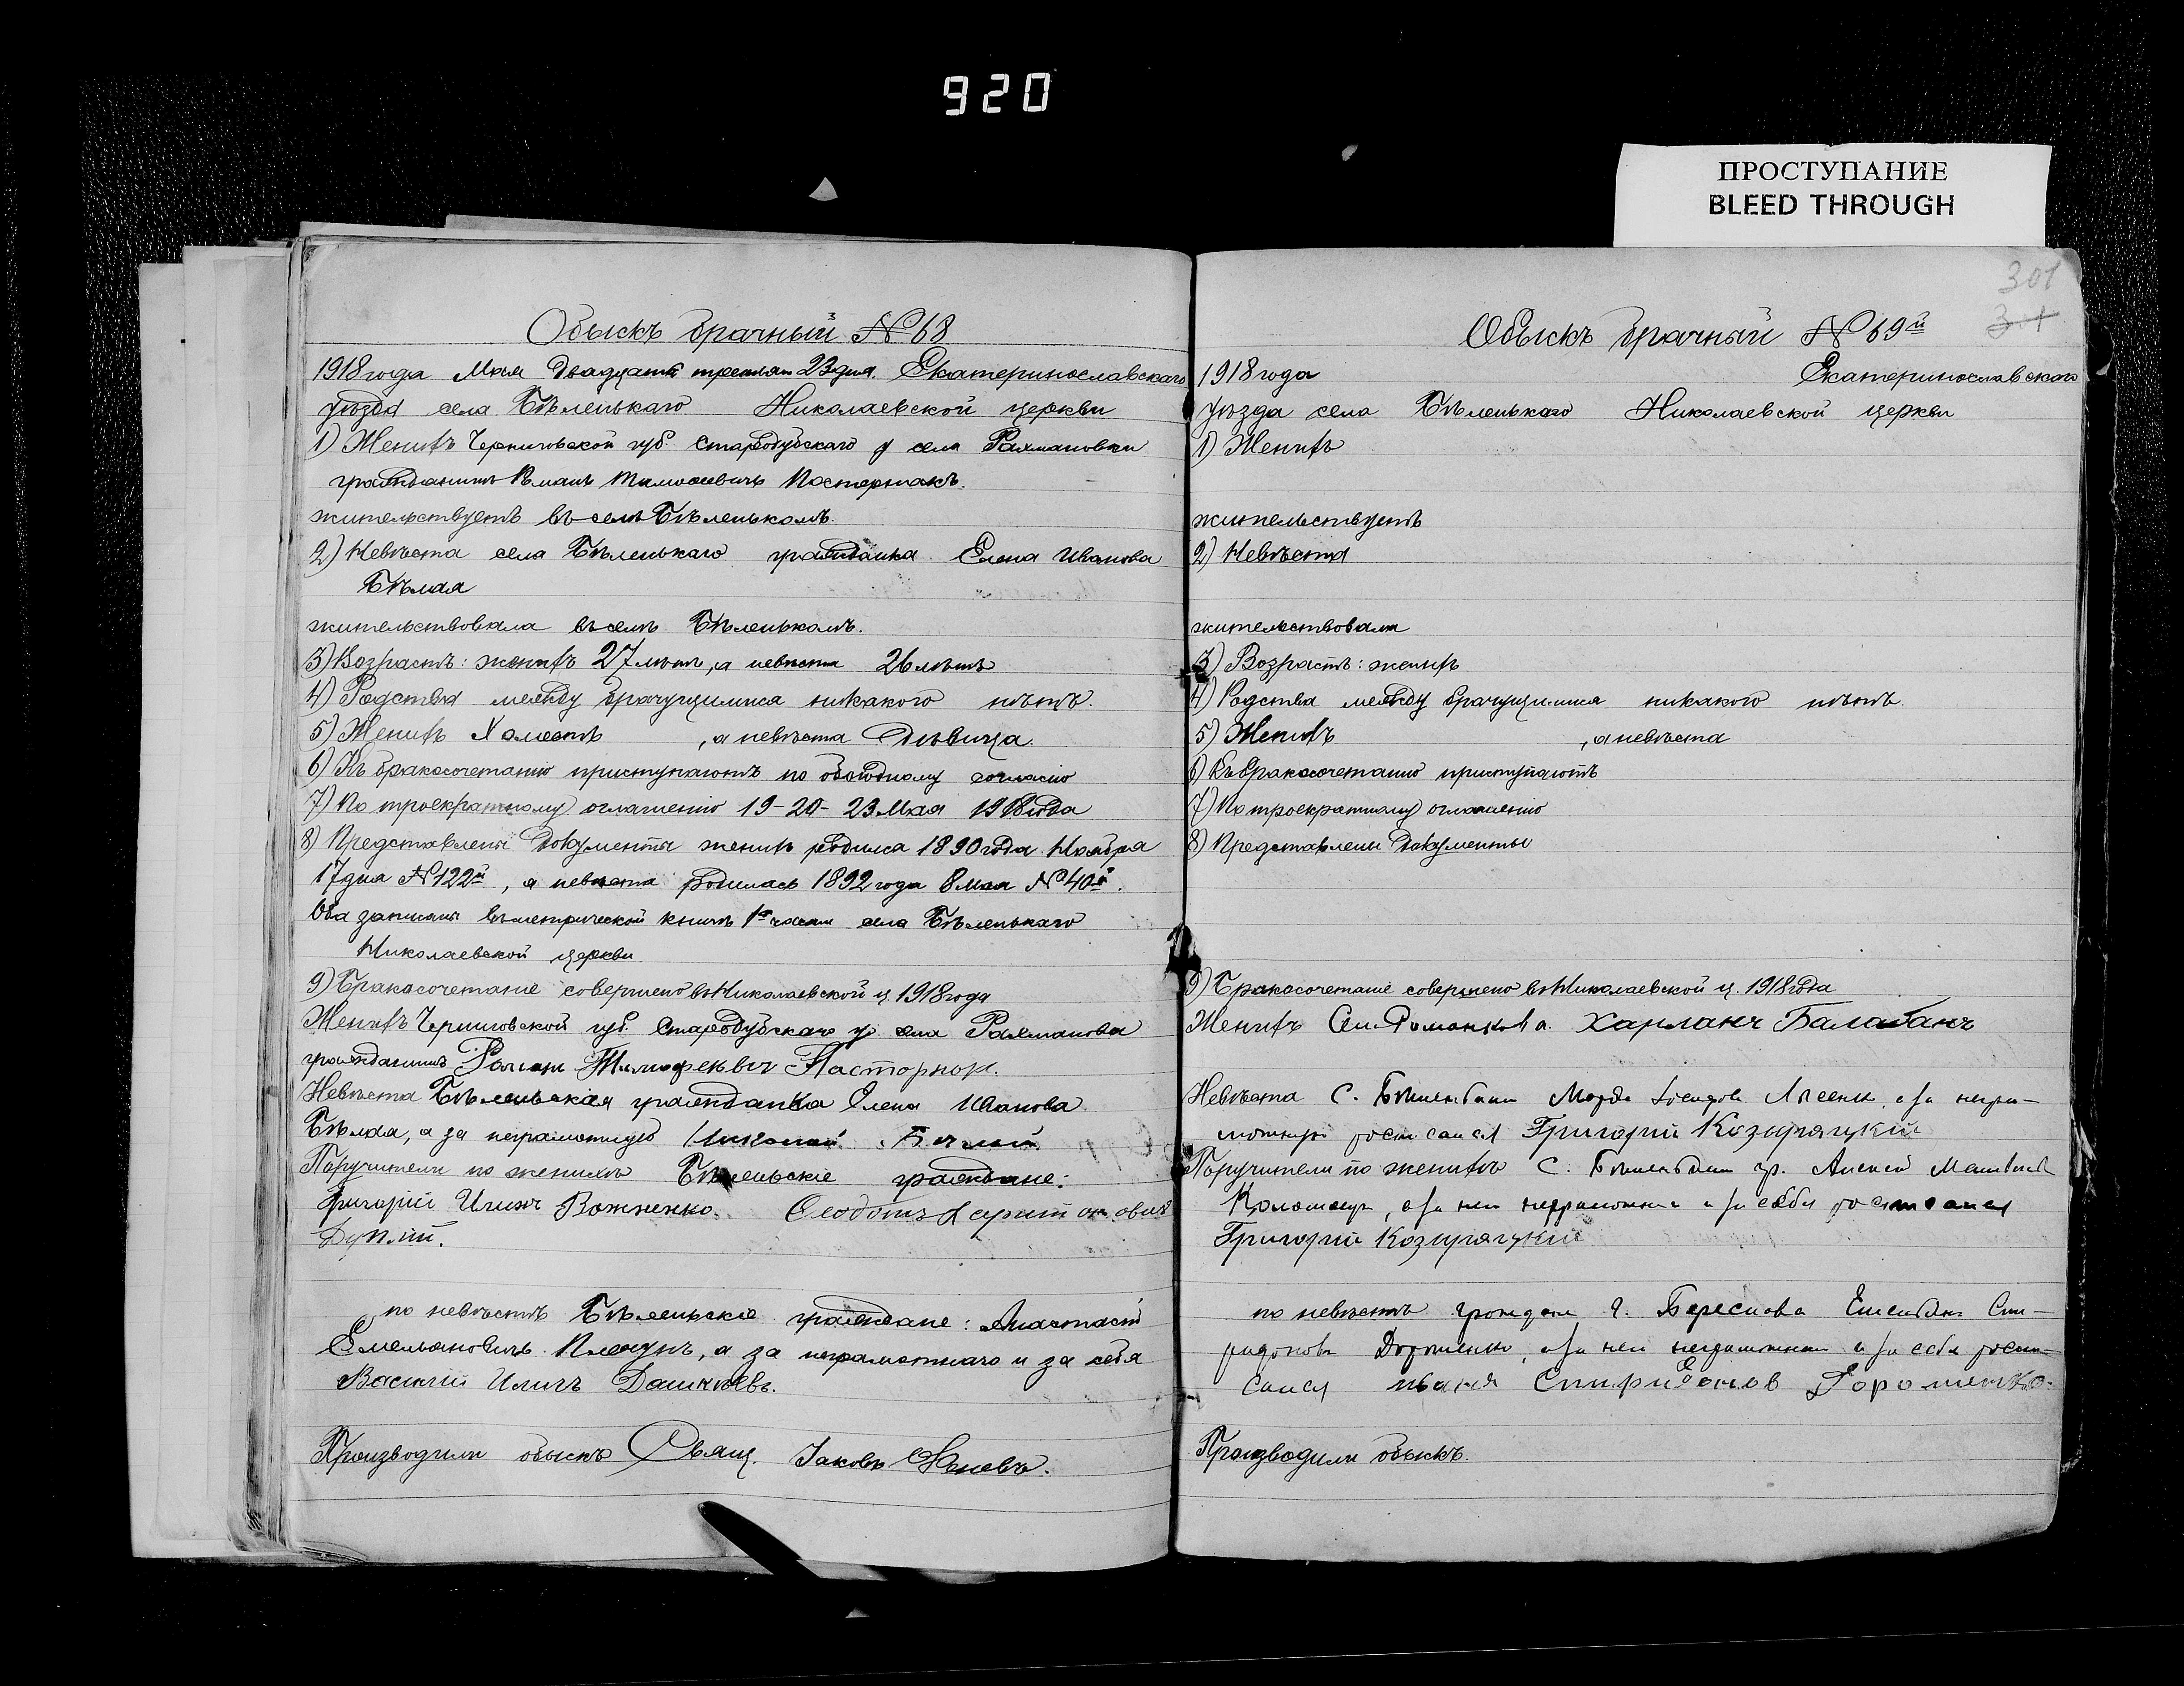 920
ПРОСТУПАНИЕ
BLEED THROUGH
Обыскъ брачный №68
1918 года Мая двадцать третьяго 23 дня. Екатеринославскаго
уѣзда села Бѣленькаго Николаевской церкви
1) Женихъ Черниговской губ. Стародубскаго у села Рахмановки
гражданинъ Романъ Тимофеевичъ Пастернакъ.
жительствуетъ въ селѣ Бѣленькомъ.
2) Невѣста села Бѣленькаго гражданка Елена Иванова
Бѣлая
жительствовала въ селѣ Бѣленькомъ.
3) Возрастъ: женихъ 27 лѣтъ, а невѣста 26 лѣтъ
4) Родства между брачущимися никакого нѣтъ.
5) Женихъ Холостъ , а невѣста Дѣвица.
6) Къ бракосочетанію приступаютъ по обоюдному согласію
7) По троекратному оглашенію 19-20-23 Мая 1918 года
8) Представлены документы женихъ родился 1890 года Ноября
17 дня №122й, а невѣста родилась 1892 года 8 мая №40й.
Оба записаны въ метрической книгѣ 1й части села Бѣленькаго
Николаевской церкви
9) Бракосочетаніе совершено въ Николаевской ц 1918 года
Женихъ Черниговской губ. Стародубскаго у. села Рахманова
гражданинъ Роман Тимофеквич Пасторнок.
Невѣста Бѣленьская гражданка Елена Иванова
Бѣлая, а за неграмотную Николай Бѣлый
Поручители по женихѣ Бѣленьскіе граждане:
Григорий Илич Важненко. Феодотъ Харитонович
по невѣстѣ Бѣленьскіе граждане: Анастасій
Емельяновичъ , а за неграмотнаго и за себя
Василий Иличъ
Производили обыскъ Свящ. Іаковъ
301
Обыскъ брачный №69й
1918 года Екатеринославскаго
уѣзда села Бѣленькаго Николаевской церкви
1) Женихъ
жительствуетъ
2) Невѣста
жительствовала
3) Возрастъ: женихъ
4) Родства между брачущимися никакого нѣтъ.
5) Женихъ , а невѣста
6) Къ бракосочетанію приступаютъ
7) По троекратному оглашенію
8) Представлены документы
9) Бракосочетаніе совершено въ Николаевской ц. 1918 года
Женихъ Романкова Харланъ Балабанъ
Невѣста С. Лысенко, а за негра-
мотную росписался Григорій Козыряцкий
Поручители по женихѣ С. гр. Алексей
, а за него неграмотнаго и за себя росписался
Григорий Козыряцкий
по невѣстѣ граждан Спи-
ридонова Дорошенко, а за неграмотнаго и за себя роспи-
сался Иванъ Спиридонов Дорошенко.
Производили обыскъ.